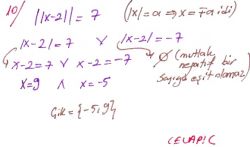 10/ ||x-2|| = 7 (|x|=a ⇒ x=∓a idi)
|x-2|=7 ∨ |x-2|=-7
x-2=7 ∨ x-2=-7 ∅ (mutlak negatif bir sayıya eşit olamaz)
x=9 ∧ x=-5
Çık={-5,9}
(CEVAP:C